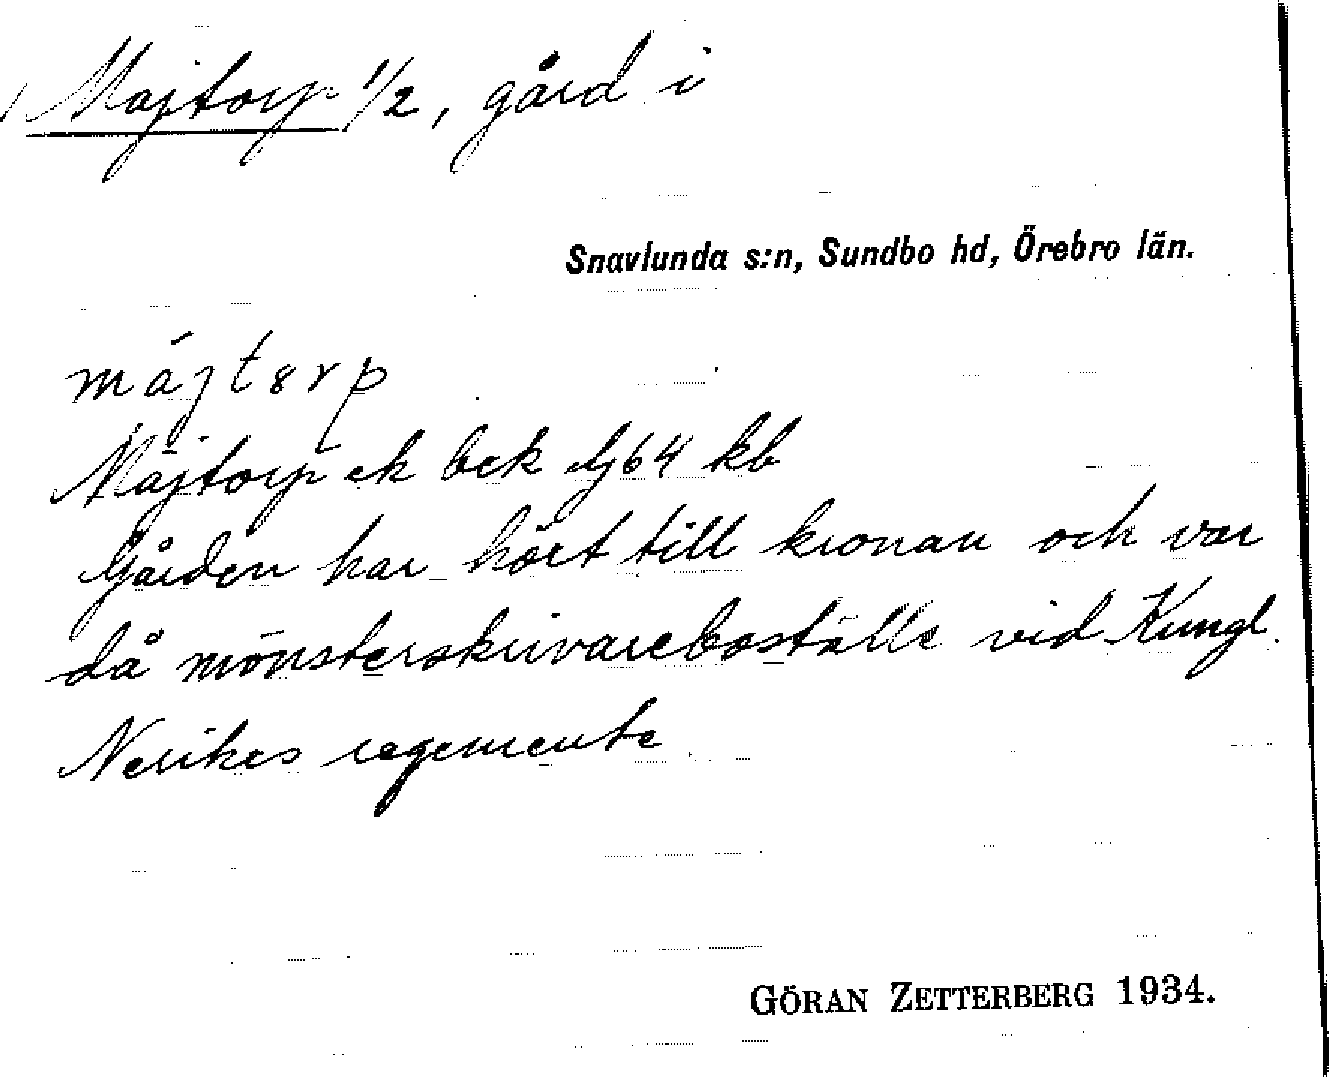 Majtorp 1/2, gård i
Snavlunda s:n, Sundbo hd, Örebro län.
májtȣrp
Majtorp ek bek Gj64 kb
Gården har hört till kronan och var
då mönsterskrivareboställe vid Kungl.
Nerikes regemente
GÖRAN ZETTERBERG 1934.